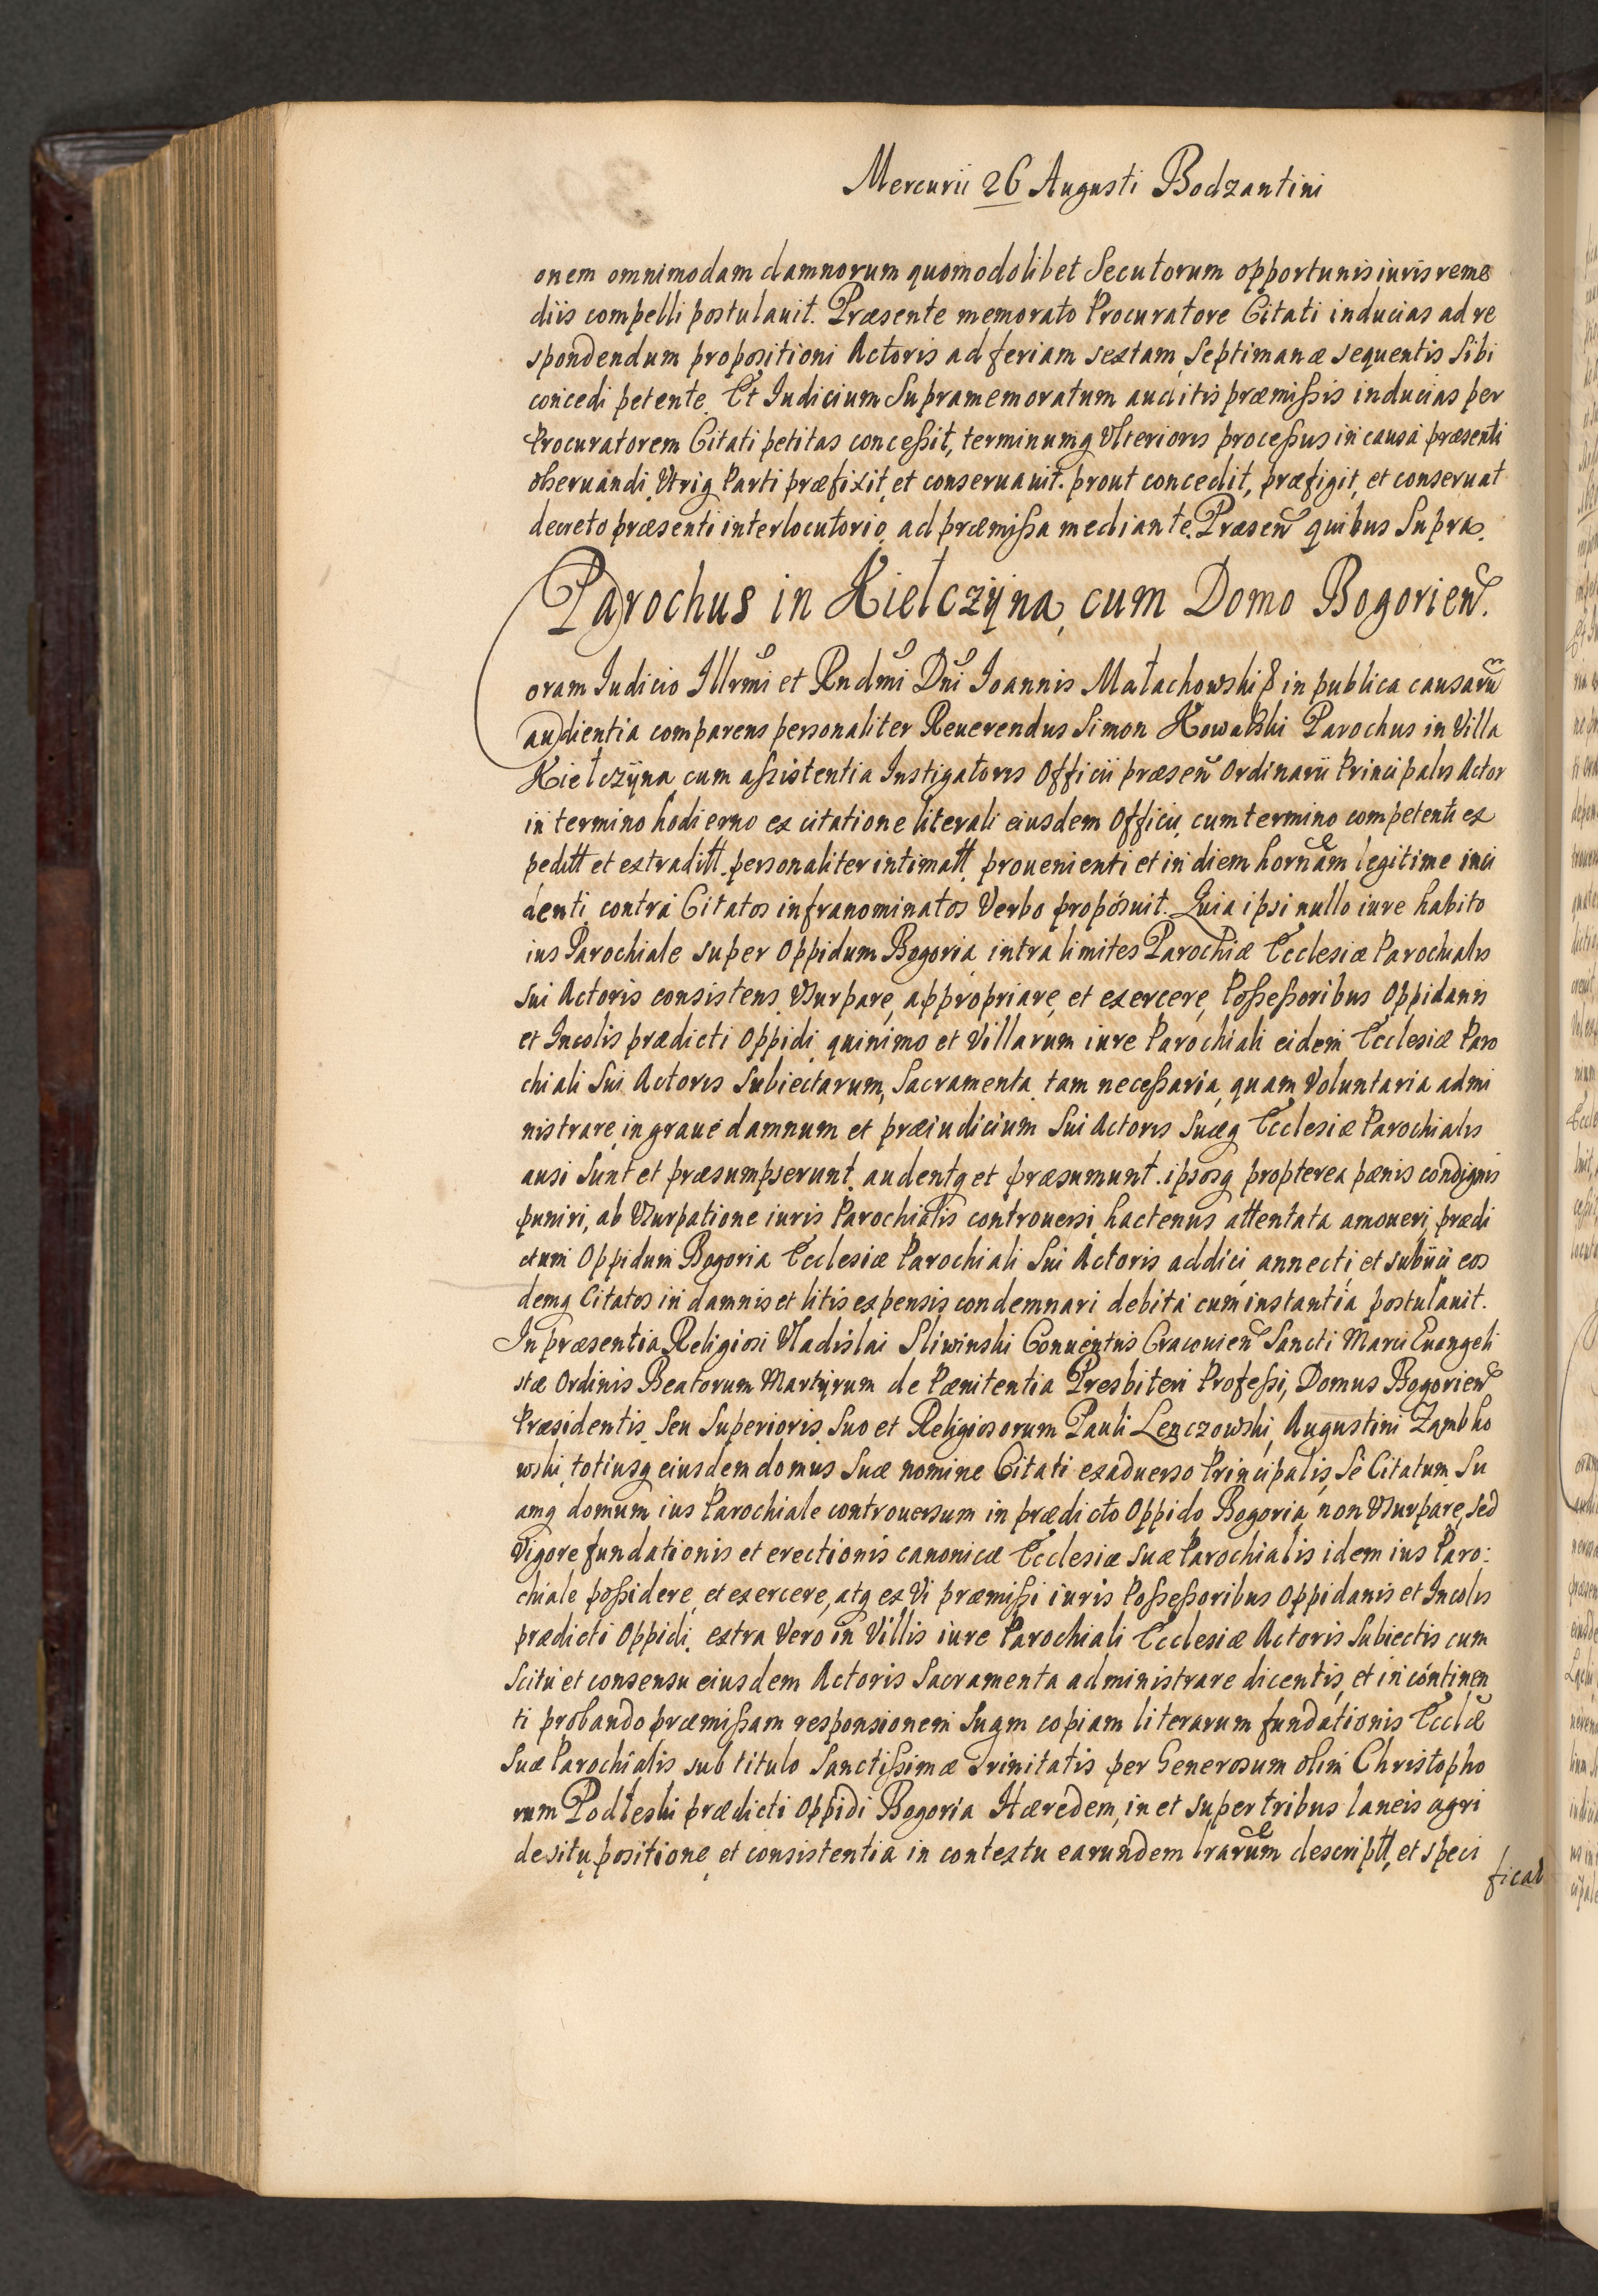 Mercurii 26 Augusti Bodzantini
onem omnimodam damnorum quomodolibet Secutorum opportunis iuris reme
diis compelli postulauit. Præsente memorato Procuratore Citati inducias ad re
spondendum propositioni Actoris ad feriam sextam Septimanæ sequentis Sibi
concedi petente. Et Iudicium Supramemoratum auditis præmißis inducias per
Procuratorem Citati petitas conceßit, terminumq Vlterioris proceßus in causa præsenti
obseruandi Vtriq Parti præfixit, et conseruauit. prout concedit, præfigit, et conseruat
decreto præsenti interlocutorio, ad præmißa mediante. Præsen quibus Supra.
Parochus in Kiełczÿna, cum Domo Bogorien.
oram Iudicio Illrmi et Rndmi Dni Ioannis Małachowski in publica causaru
audientia comparens personaliter Reuerendus Simon Kowalski Parochus in Villa
Kiełczÿna cum aßistentia Instigatoris Officii præsen Ordinarii Principalis Actor
in termino hodierno ex citatione literali eiusdem Officii, cum termino competenti ex
peditt et extraditt. personaliter intimatt. prouenienti et in diem hornam legitime inci
denti contra Citatos infranominatos Verbo proposuit. Quia ipsi nullo iure habito
ius Parochiale super Oppidum Bogoria intra limites Parochiæ Ecclesiæ Parochialis
Sui Actoris consistens Vsurpare, appropriare, et exercere, Poßeßoribus Oppidanis
et Incolis prædicti Oppidi quinimo et Villarum iure Parochiali eidem Ecclesiæ Paro
chiali Sui Actoris Subiectarum, Sacramenta tam neceßaria, quam Voluntaria admi
nistrare in graue damnum et præiudicium Sui Actoris Suæq Ecclesiæ Parochialis
ausi Sunt et præsumpserunt. audentq et præsumunt. ipsosq propterea pænis condignis
puniri, ab Vsurpatione iuris Parochialis controuersi hactenus attentata amoueri, prædi
ctum Oppidum Bogoria Ecclesiæ Parochiali Sui Actoris addici annecti et subiici eos
demq Citatos in damnis et litis expensis condemnari debita cum instantia postulauit.
In præsentia Religiosi Vladislai Sliwinski Conuentus Cracouien Sancti Marci Euangeli
stæ Ordinis Beatorum Martÿrum de Pænitentia Presbiteri Profeßi, Domus Bogorien
Præsidentis Seu Superioris Suo et Religiosorum Pauli Lenczowski, Augustini Zambko
wski totiusq eiusdem domus Suæ nomine Citati exaduerso Principalis, Se Citatum Su
amq domum ius Parochiale controuersum in prædicto Oppido Bogoria non Vsurpare, Sed
Vigore fundationis et erectionis canonicæ Ecclesiæ Suæ Parochialis idem ius Paro:
chiale poßidere, et exercere, atq ex Vi præmißi iuris Poßeßoribus Oppidanis et Incolis
prædicti Oppidi, extra Vero in Villis iure Parochiali Ecclesiæ Actoris Subiectis cum
Scitu et consensu eiusdem Actoris Sacramenta administrare dicentis, et in continen
ti probando præmißam responsionem Suam copiam literarum fundationis Ecclæ
Suæ Parochialis sub titulo Sanctißimæ Trinitatis per Generosum olim Christopho
rum Podleski prædicti Oppidi Bogoria Hæredem, in et super tribus laneis agri
de situ positione et consistentia in contextu earundem lrarum descriptt, et speci
ficat